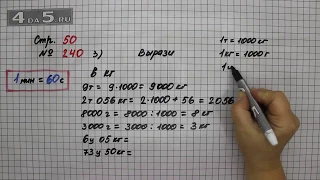 4 DA 5 .RU
Стр. 50
№ 240 3) Вырази
1 мин = 60 с
1 т = 1000 кг
1 кг = 1000 г
1 ц
в кг
9 т = 9 · 1000 = 9000 кг
2 т 056 кг = 2 · 1000 + 56 = 2056
8000 г = 8000 : 1000 = 8 кг
3000 г = 3000 : 1000 = 3 кг
6 ц 05 кг =
73 ц 50 кг =